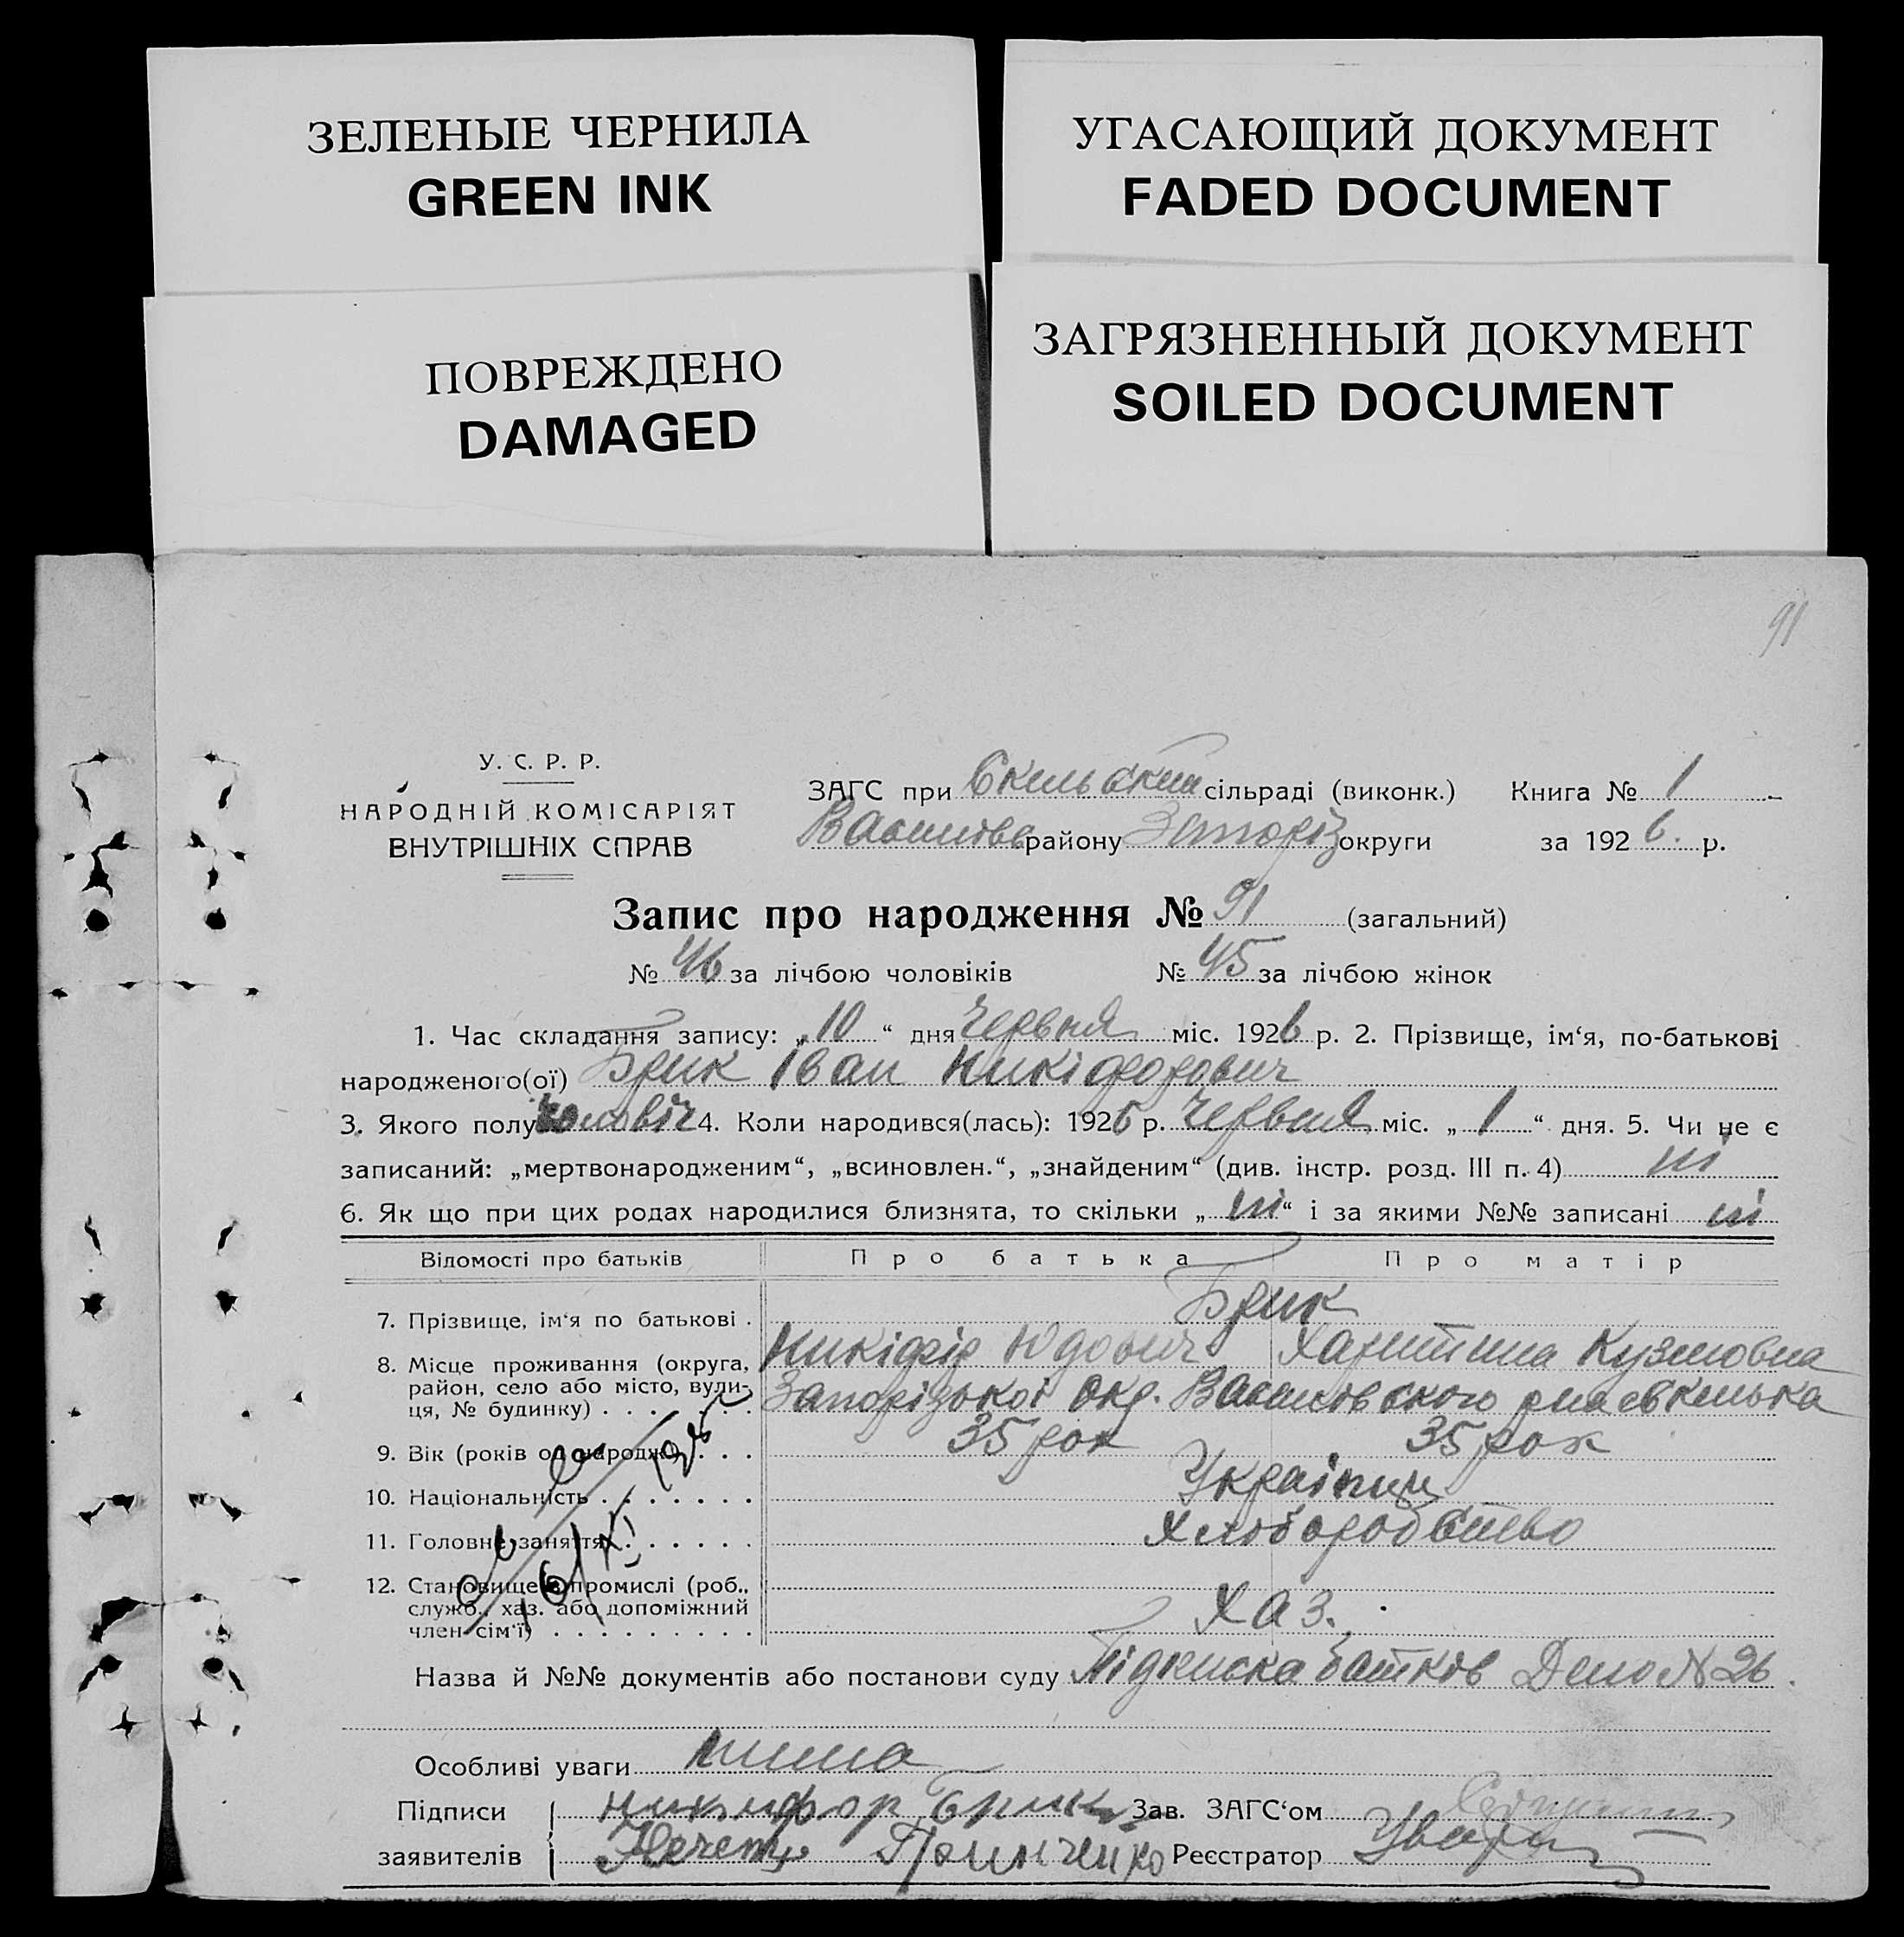 ЗЕЛЕНЫЕ ЧЕРНИЛА
GREEN INK
УГАСАЮЩИЙ ДОКУМЕНТ
FADED DOCUMENT
ПОВРЕЖДЕНО
DAMAGED
ЗАГРЯЗНЕННЫЙ ДОКУМЕНТ
SOILED DOCUMENT
91
У. С. Р. Р.
НАРОДНІЙ КОМІСАРІЯТ
ВНУТРІШНІХ СПРАВ
ЗАГС при Скельській сільраді (виконк.) Книга № 1
Василівс району Запоріз округи за 1926. р.
Запис про народження № 91 (загальний)
№ 46 за лічбою чоловіків № 45 за лічбою жінок
1. Час складання запису: „10“ дня Червня міс. 1926 р. 2. Прізвище, ім‘я, по-батькові
народженого(ої) Брик Іван Никіфорович
3. Якого полу чоловіч 4. Коли народився(лась): 1926 р. Червня міс. „1“ дня. 5. Чи не є
записаний: „мертвонародженим“, „всиновлен.“, „знайденим“ (див. інстр. розд. III п. 4) ні
6. Як що при цих родах народилися близнята, то скільки „ні“ і за якими №№ записані ні
Відомості про батьків Про батька Про матір
Брик
7. Прізвище, ім‘я по батькові . Никіфір Юдович Харитина Кузмовна
8. Місце проживання (округа,
район, село або місто, вули-
ця, № будинку) . . . . . . . Запорізької Окр. Василівського
9. Вік (років од народж.) . . . 35 рок 35 рок
10. Національність . . . . . . . Українці
11. Головне заняття . . . . . . Хліборобство
12. Становище в промислі (роб.,
служб., хаз. або допоміжний
член сім‘ї) . . . . . . . . . Хаз.
Назва й №№ документів або постанови суду Підписка батків Дело № 26.
Особливі уваги нима
Підписи никифор Брик Зав. ЗАГС‘ом
заявителів Реєстратор